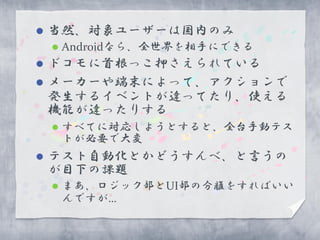 当然、対象ユーザーは国内のみ
Androidなら、全世界を相手にできる
ドコモに首根っこ押さえられている
メーカーや端末によって、アクションで
発生するイベントが違ってたり、使える
機能が違ったりする
すべてに対応しようとすると、全台手動テス
トが必要で大変
テスト自動化とかどうすんべ、と言うの
が目下の課題
まあ、ロジック部とUI部の分離をすればいい
んですが…